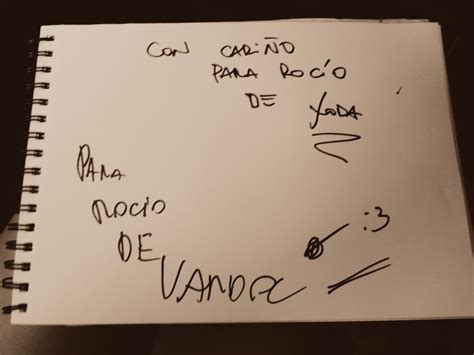 CON CARIÑO
PARA ROCÍO
DE YODA
PARA
ROCIO
DE
VANDX
:3